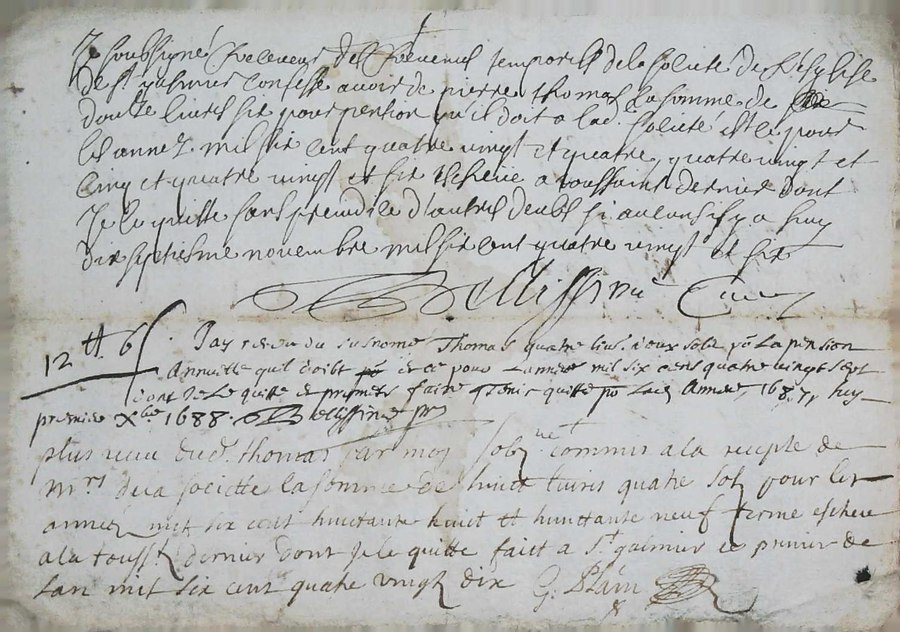 Je soubsigné Receveur des Revenus temporels de la societé de L'esglise
de St galmier Confesse avoir de pierre thomas La somme de
douze livres six pour pension qu'il doit a lad. societé et ce pour
les annez mil six cent quatre vingt et quatre, quatre vingt et
cinq et quatre vingt et six escheue a toussaint dernier dont
Je le quitte sans preiudice d'autres deubs si aulcuns y a faict
dix septiesme novembre mil six cent quatre vingt et six
Bellissime Curé
12 tt 6 s
Jay receu du susnomé Thomas quatre livres deux solz po La pension
Annuelle quil doibt et ce pour L'annee mil six cens quatre vingt sept
dont Je Le quitte et promets faire tenir quitte po Lad Annee, 1687, huy
premier Xbre 1688. Bellissime pre
plus receu dud. thomas par moy sobzne commis a la recepte de
Mrs de la societte la somme de huict livres quatre solz pour les
annez mil six cent huictante huict et huictante neuf terme escheu
a la toussz dernier dont Je le quitte faict a St galmier ce premier de
lan mil six cent quatre vingtz dix G. Blain